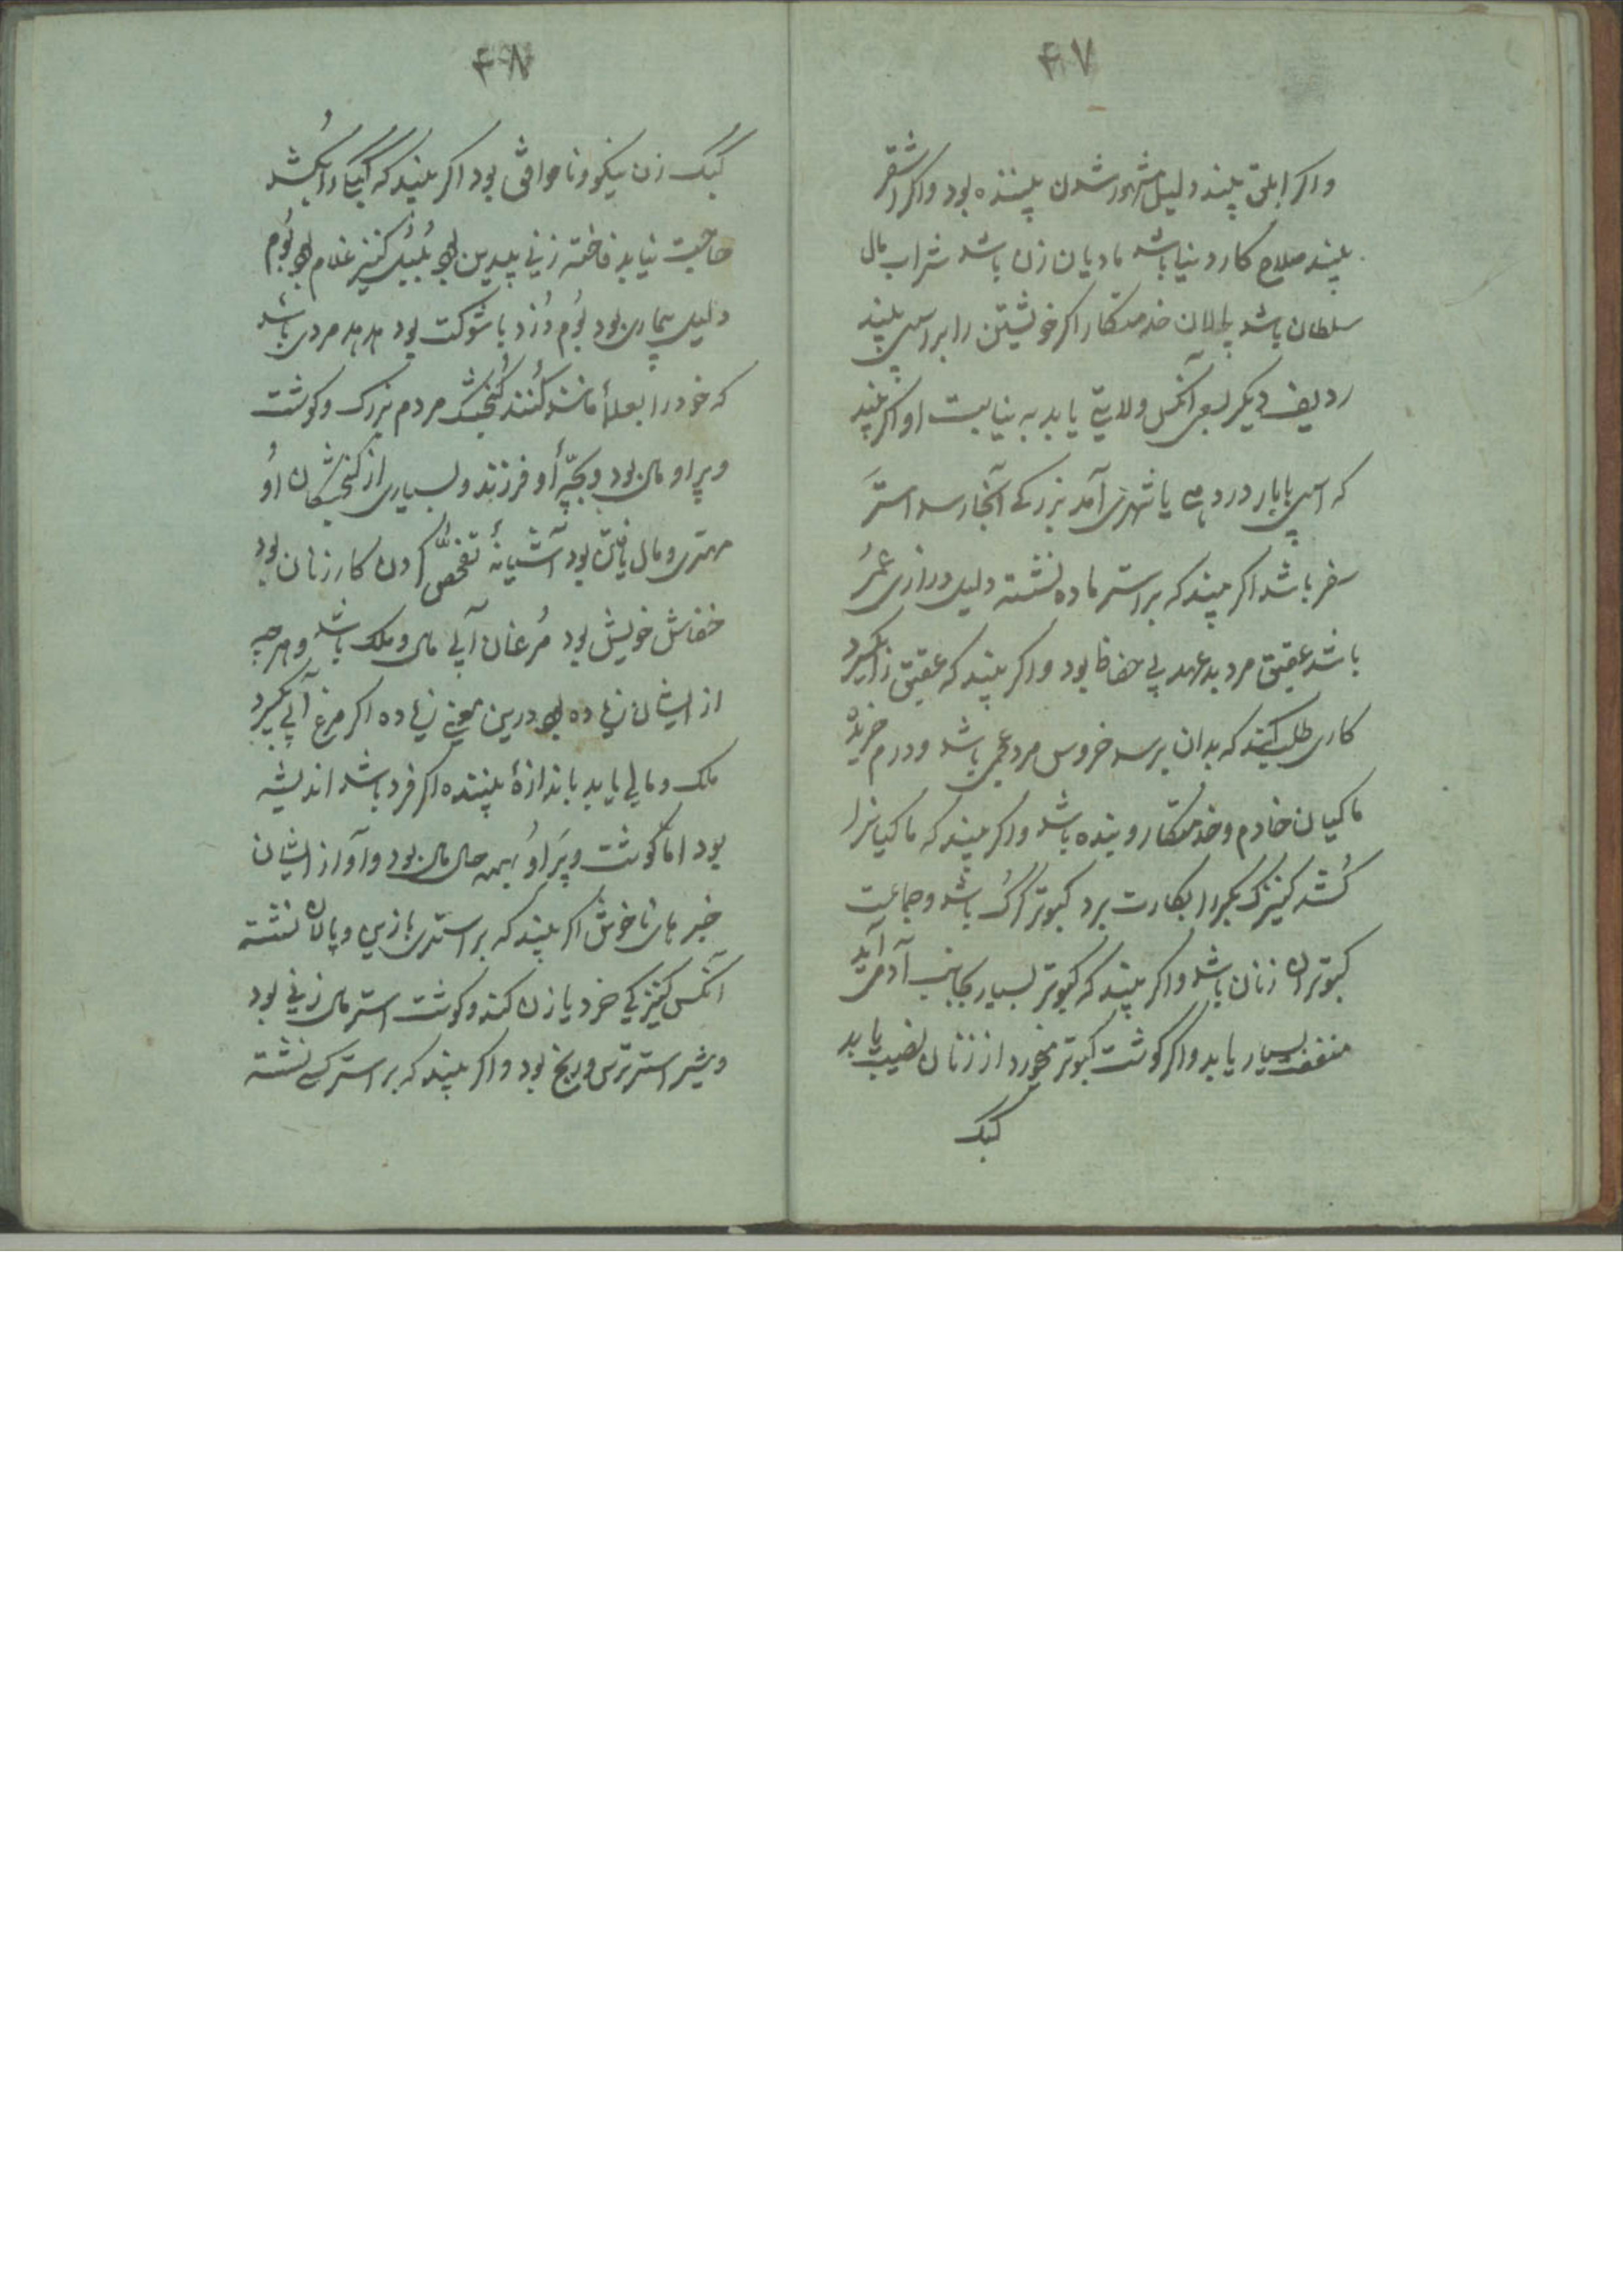 ۴۷
واکر ابلق بیند دلیل مشهور شدن بیننده بود واکر اشقر
بیند صلاح کار دنیا باشد مادیان زن باشد شراب مال
سلطان باشد خدمتکار اکر خویشتن را بر اسپی بیند
ردیف دیکر بسعی آنکس ولایتی یابد به نیابت او اکر بیند
که اسپی با بار در دهی یا شهری آمد بزرکی آنجا رسد استر
سفر باشد اکر بیند که بر استر ماده نشسته دلیل درازی عمر
باشد عقیق مرد بدعهد بی حفاظ بود واکر بیند که عقیق را بکیرد
کاری طلب کند که بدان برسد خروس مرد عجمی باشد ودرم خریده
ماکیان خادم وخدمتکار وبنده باشد واکر بیند که ماکیانرا
کشد کنیزک بکر را بکارت برد کبوتر باشد وجماعت
کبوتران زنان باشد واکر بیند که کبوتر بسیار بجانب آدمی آید
منفعت بسیار یابد واکر کوشت کبوتر میخورد از زنان نصیب یابد
کبک
۴۸
کبک زن نیکو وناموافق بود اکر بیند که کبک را بکشد
حاجت نیابد فاخته زنی بیدین بود بلبل کنیز غلام بود بوم
دلیل بیماری بود بوم دزد باشوکت بود هدهد مردی باشد
که خود را بعلما مانند کنند کنجشک مردم بزرک وکوشت
وپر او مال بود وبچّه او فرزند وبسیاری از کنجشکان او
مهتری ومال یافتن بود آشیانهٔ تفحّص کردن کار زنان بود
خفاش خویش بود مرغان آبی مال وملک باشد وهرچه
از ایشان زیاده بود درین معنی زیاده اکر مرغ آبی بکیرد
ملک ومالی یابد باندازهٔ بیننده اکر فرد باشد اندیشه
بود امّا کوشت وپر او همه حال مال بود وآواز ایشان
خبر های ناخوش اکر بیند که بر استری بازین وپالان نشسته
آنکس کنیزکی خرد یا زن کند وکوشت استر مال زنی بود
وشیر استر ترس ورنج بود واکر بیند که بر استر کسی نشسته